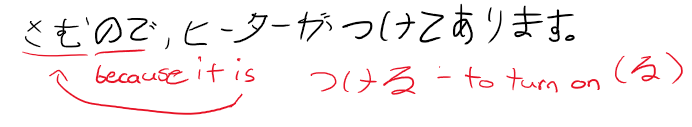 さむので,ヒーターがつけてあります。
because it is つける - to turn on (る)